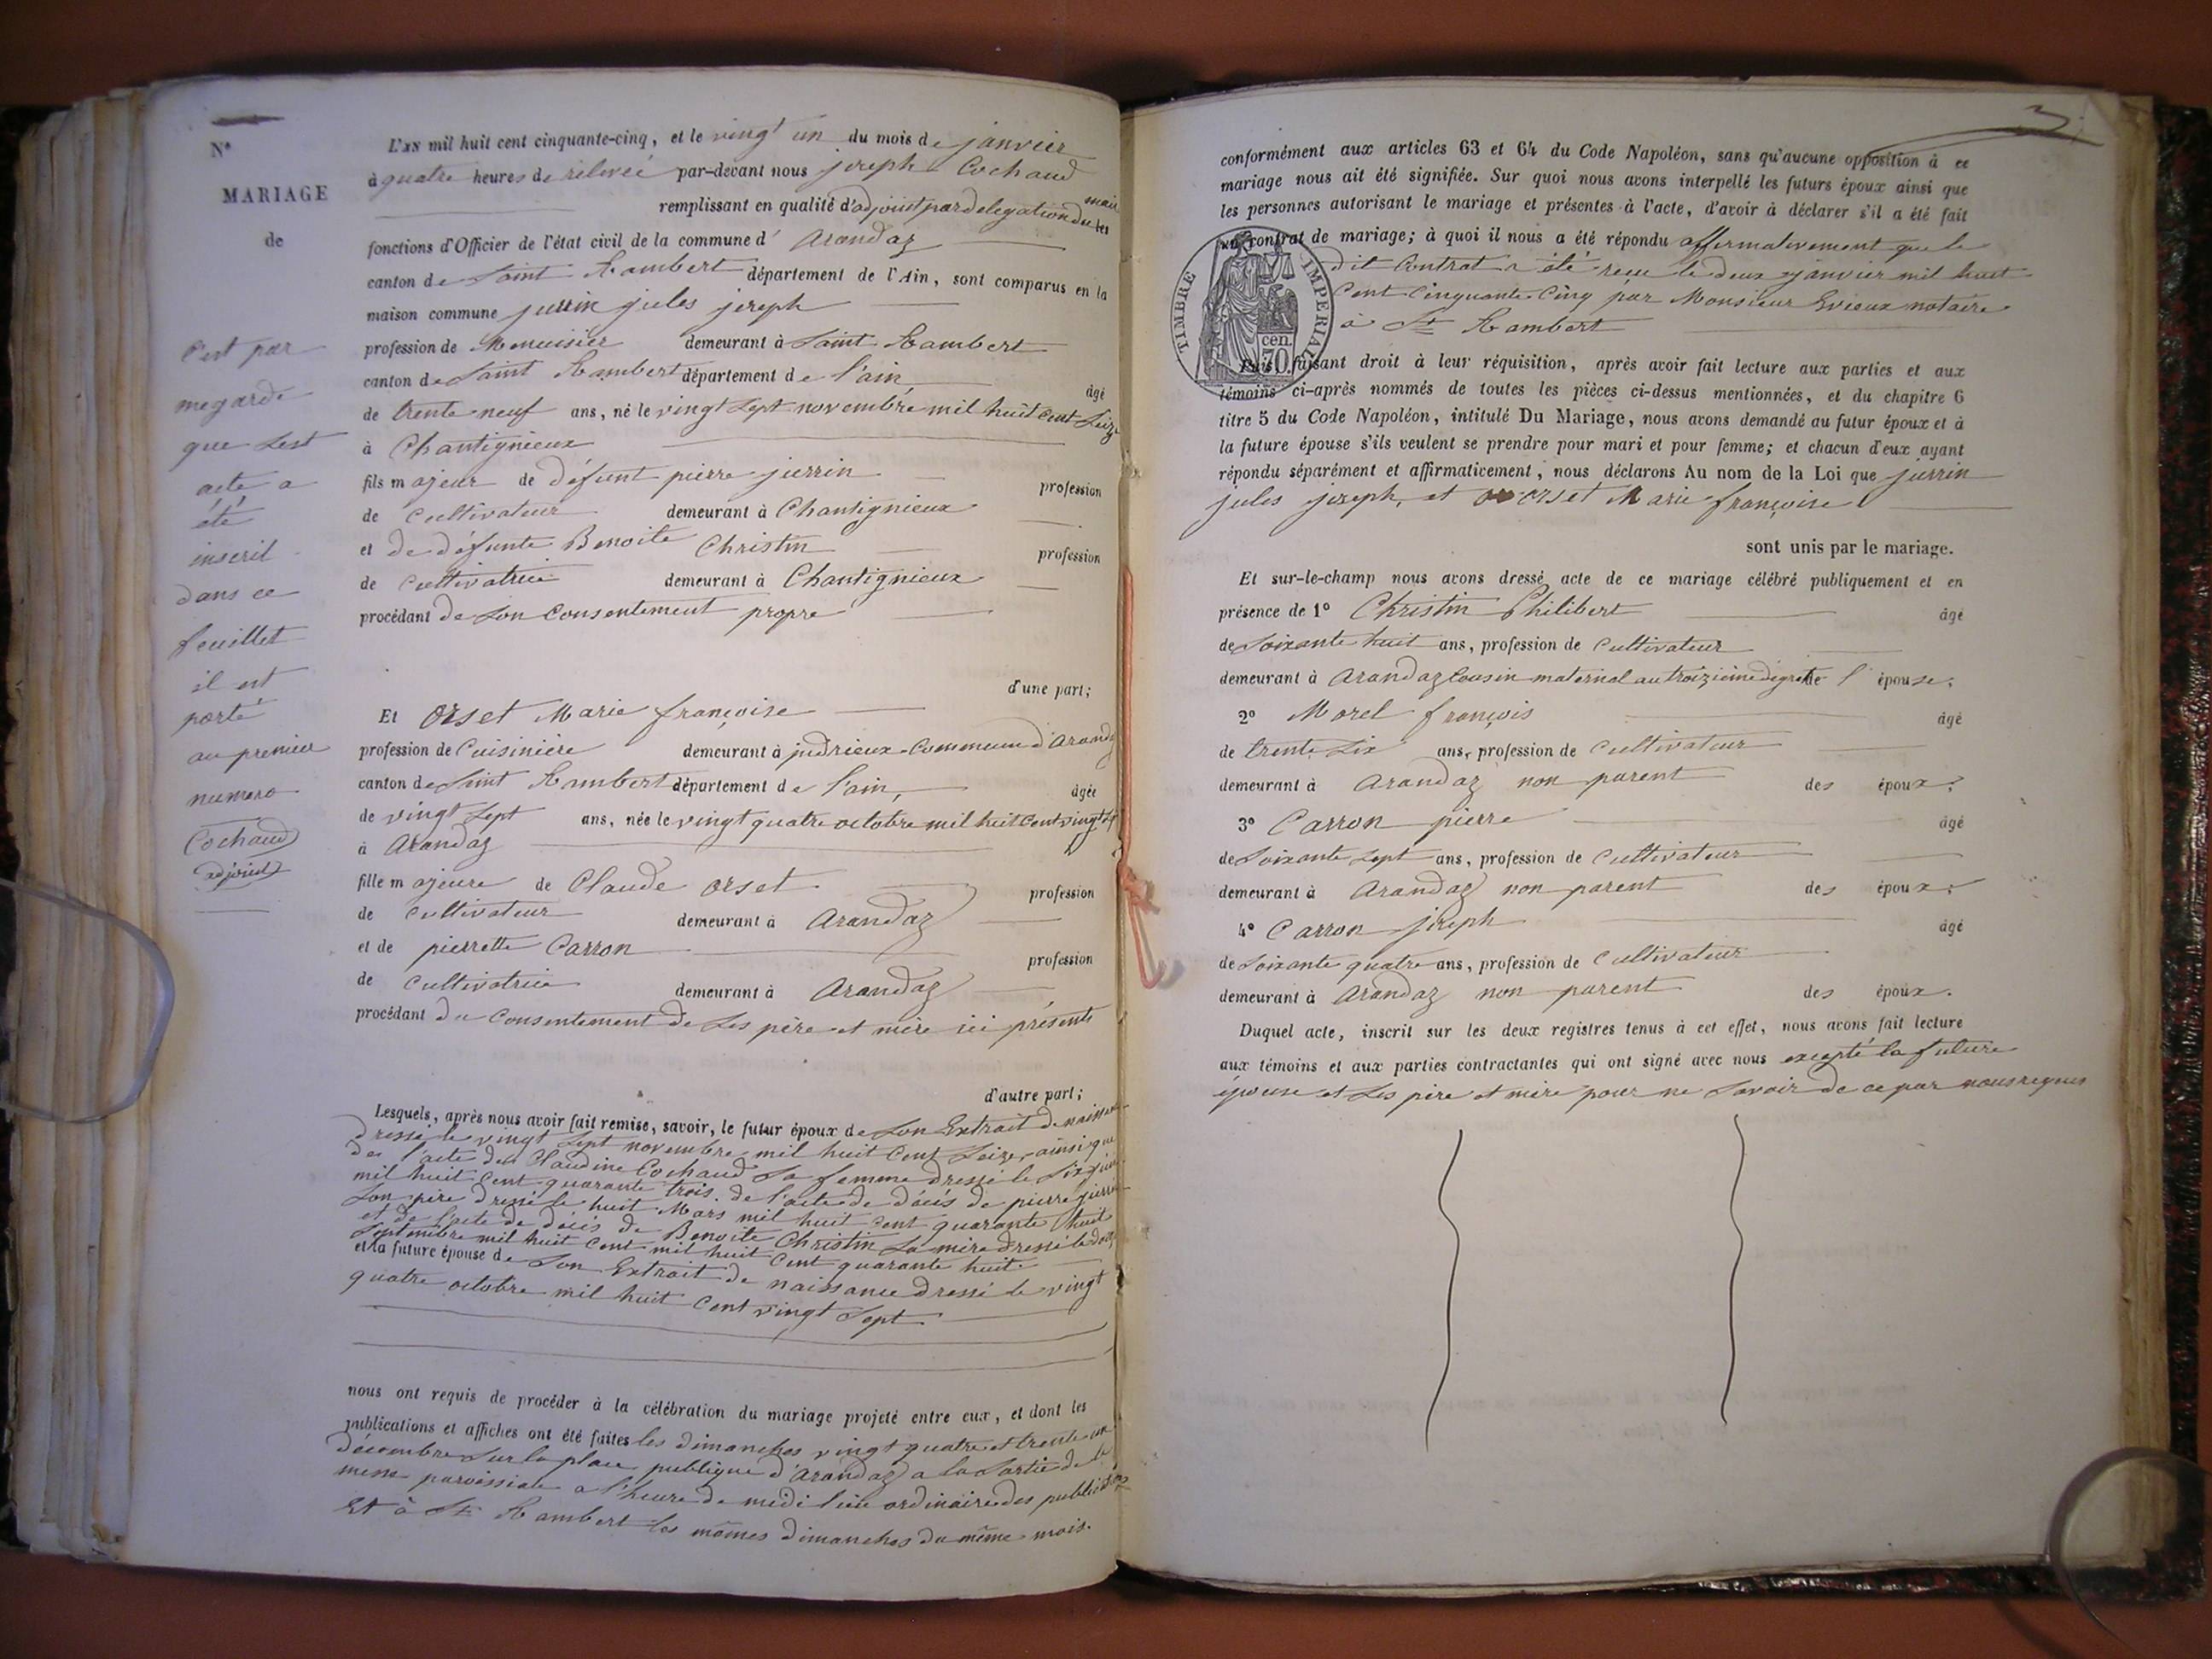 N°
MARIAGE
de
c'est par
megarde
que cest
acte a
été
inscrit
dans ce
feuillet
il est
porté
au premier
numero
Cochaud
adjoint
L'AN mil huit cent cinquante-cinq, et le vingt un du mois de janvier
à quatre heures de relevée par-devant nous joseph Cochaud
remplissant en qualité d'adjoint par delegation du maire les
fonctions d'Officier de l'état civil de la commune d' Arandaz
canton de Saint Rambert département de l'Ain, sont comparus en la
maison commune jurrin jules joseph
profession de Menuisier demeurant à Saint Rambert
canton de Saint Rambert département de l'ain, âgé
de trente neuf ans, né le vingt sept novembre mil huit cent seize
à Chantignieux
fils majeur de défunt pierre jurrin profession
de Cultivateur demeurant à Chantignieux
et de défunte Benoite Christin profession
de Cultivatrice demeurant à Chantignieux
procédant de son consentement propre
d'une part;
Et Orset Marie françoise
profession de Cuisinière demeurant à judrieux Commune d'Arandaz
canton de Saint Rambert département de l'ain, âgée
de vingt sept ans, née le vingt quatre octobre mil huit cent vingt sept
à Arandaz
fille majeure de Claude orset profession
de Cultivateur demeurant à Arandaz
et de pierrette Carron profession
de Cultivatrice demeurant à Arandaz
procédant du Consentement de ses père et mère ici présents
d'autre part;
Lesquels, après nous avoir fait remise, savoir, le futur époux de son Extrait de naissance
dressé le vingt sept novembre mil huit Cent Seize, ainsi que
de l'acte de Claudine Cochaud sa femme dressé le six
mil huit Cent quarante trois. de l'acte de décés de pierre jurrin
son père dressé le huit Mars mil huit cent quarante huit
et de l'acte de décés de Benoite Christin sa mère dressé le
Septembre mil huit Cent mil huit Cent quarante huit.
et la future épouse de son Extrait de naissance dressé le vingt
quatre octobre mil huit Cent vingt Sept.
nous ont requis de procéder à la célébration du mariage projeté entre eux, et dont les
publications et affiches ont été faites les dimanches vingt quatre et trente un
décembre sur la place publique d'Arandaz a la Sortie de la
messe paroissiale a l'heure de midi lieu ordinaire des publications
Et à St Rambert les mêmes dimanches du même mois.
3
conformément aux articles 63 et 64 du Code Napoléon, sans qu'aucune opposition à ce
mariage nous ait été signifiée. Sur quoi nous avons interpellé les futurs époux ainsi que
les personnes autorisant le mariage et présentes à l'acte, d'avoir à déclarer s'il a été fait
un contrat de mariage; à quoi il nous a été répondu affirmativement que le
dit Contrat a été reçu le deux janvier mil huit
Cent Cinquante Cinq par Monsieur Evieux notaire
à St Rambert
TIMBRE IMPERIAL
cen. 70
Puis, faisant droit à leur réquisition, après avoir fait lecture aux parties et aux
témoins ci-après nommés de toutes les pièces ci-dessus mentionnées, et du chapitre 6
titre 5 du Code Napoléon, intitulé Du Mariage, nous avons demandé au futur époux et à
la future épouse s'ils veulent se prendre pour mari et pour femme; et chacun d'eux ayant
répondu séparément et affirmativement, nous déclarons Au nom de la Loi que jurrin
jules joseph, et orset Marie françoise
sont unis par le mariage.
Et sur-le-champ nous avons dressé acte de ce mariage célébré publiquement et en
présence de 1° Christin Philibert âgé
de Soixante huit ans, profession de Cultivateur
demeurant à Arandaz Cousin maternel au troizième degré de l'épouse;
2° Morel françois âgé
de trente six ans, profession de Cultivateur
demeurant à Arandaz non parent des époux;
3° Carron pierre âgé
de Soixante sept ans, profession de Cultivateur
demeurant à Arandaz non parent des époux;
4° Carron joseph âgé
de Soixante quatre ans, profession de Cultivateur
demeurant à Arandaz non parent des époux.
Duquel acte, inscrit sur les deux registres tenus à cet effet, nous avons fait lecture
aux témoins et aux parties contractantes qui ont signé avec nous excepté la future
épouse et ses père et mère pour ne savoir de ce par nous requis